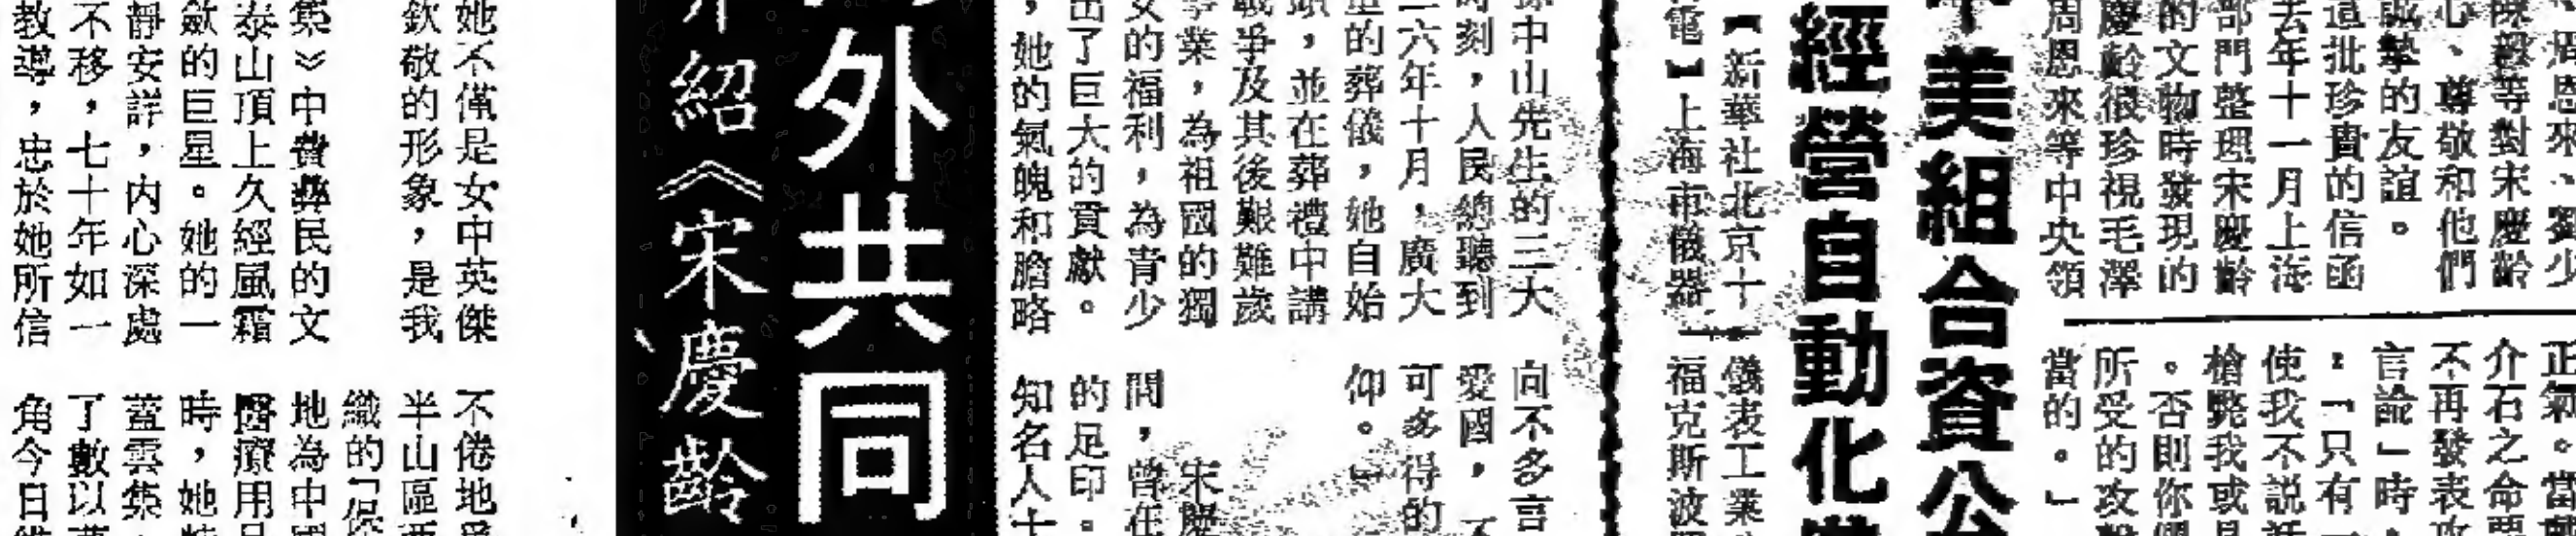 、周恩來、劉少
陳毅等對宋慶齡
心、尊敬和他們
誠摯的友誼。
這批珍貴的信函
去年十一月上海
部門整理宋慶齡
的文物時發現的
慶齡很珍視毛澤
周恩來等中央領
正氣。當
介石之命要
不再發表攻
言論」時,
：「只有
使我不說話
槍斃我或是
。否則你們
所受的攻擊
當的。」
中美組合資公
經營自動化
【新華社北京十
電】上海市儀器
儀表工業
福克斯波
孫中山先生的三大
時刻，人民總聽到
二六年十月，廣大
重的葬儀，她自始
頭，並在葬禮中講
戰爭及其後艱難歲
事業，為祖國的獨
女的福利，為青少
出了巨大的貢獻。
，她的氣魄和膽略
向不多言
愛國，不
可多得的
仰。」
宋慶
間，曾任
的足印。
知名人士
外共同
介紹《宋慶齡
她不僅是女中英傑
欽敬的形象，是我
集》中費彝民的文
泰山頂上久經風霜
斂的巨星。她的一
靜安詳，內心深處
不移，七十年如一
教導，忠於她所信
不倦地爲
半山區西
織的「保
地為中國
醫療用品
時，她
蓋雲集，
了數以萬
角今日